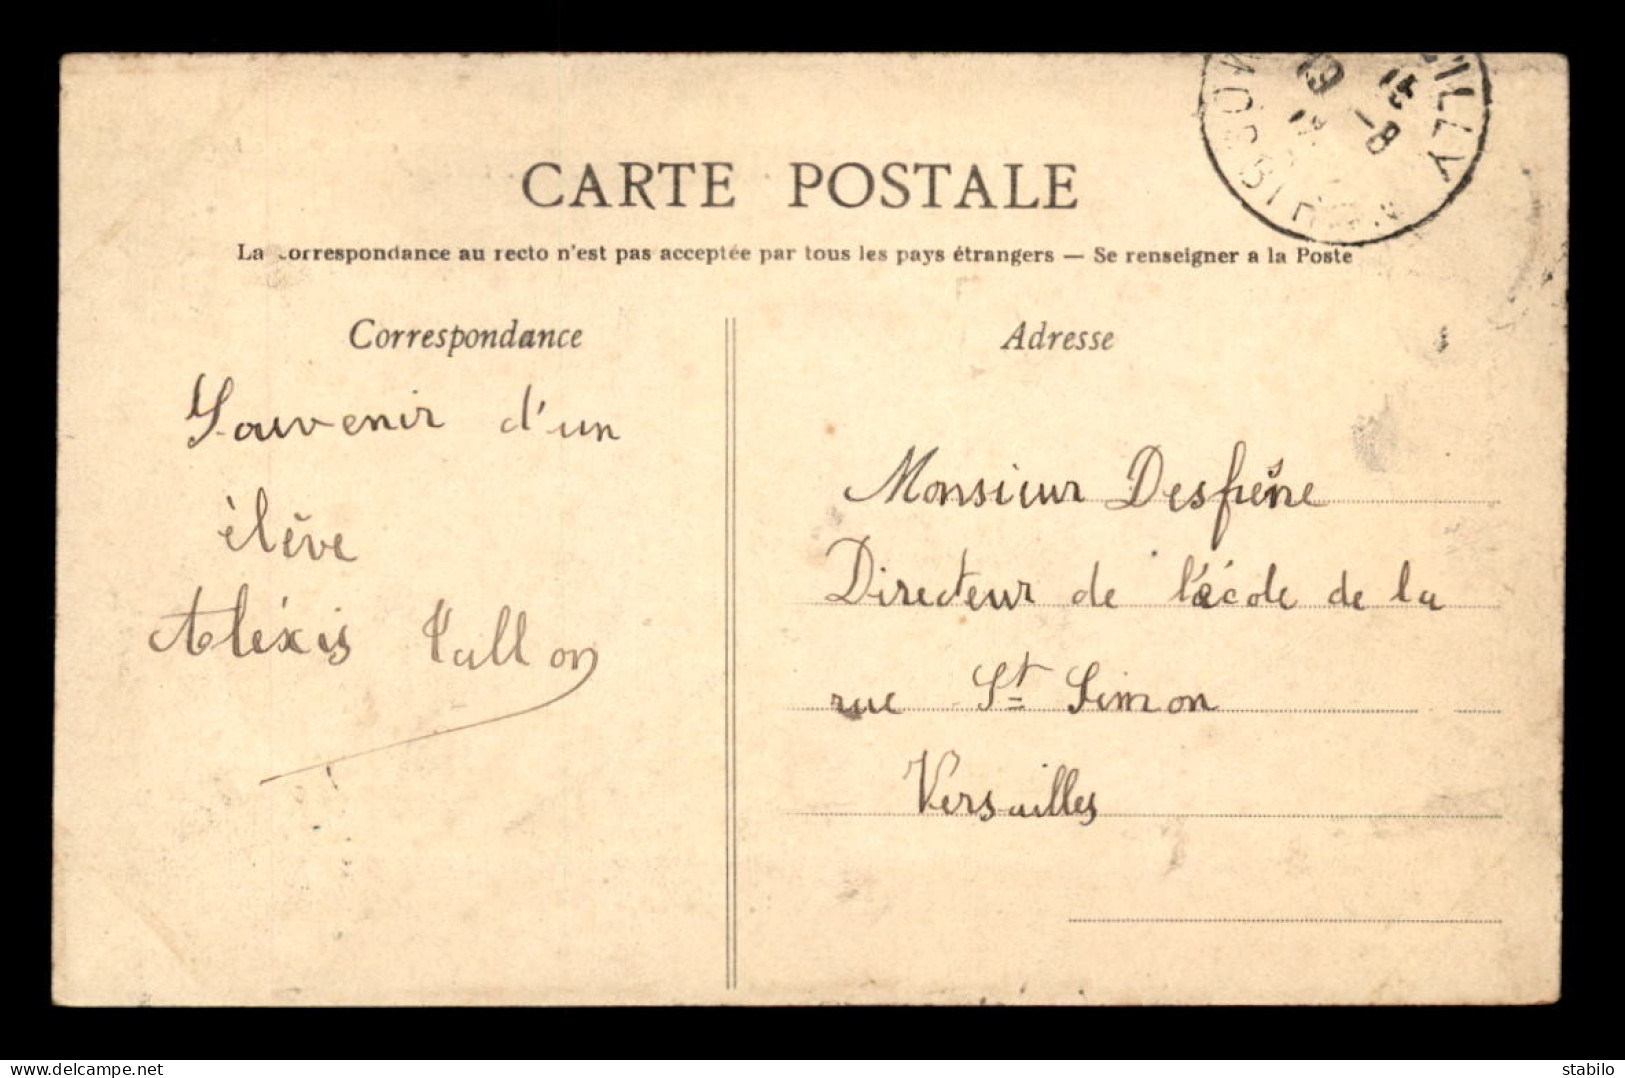 CARTE POSTALE
La correspondance au recto n'est pas acceptée par tous les pays étrangers — Se renseigner a la Poste
Correspondance
Souvenir d'un
élève
Aléxis Tallon
Adresse
Monsieur Desfrêne
Directeur de l'école de la
rue St Simon
Versailles
MORBIHAN
15 -8
delcampe.net
stabilo